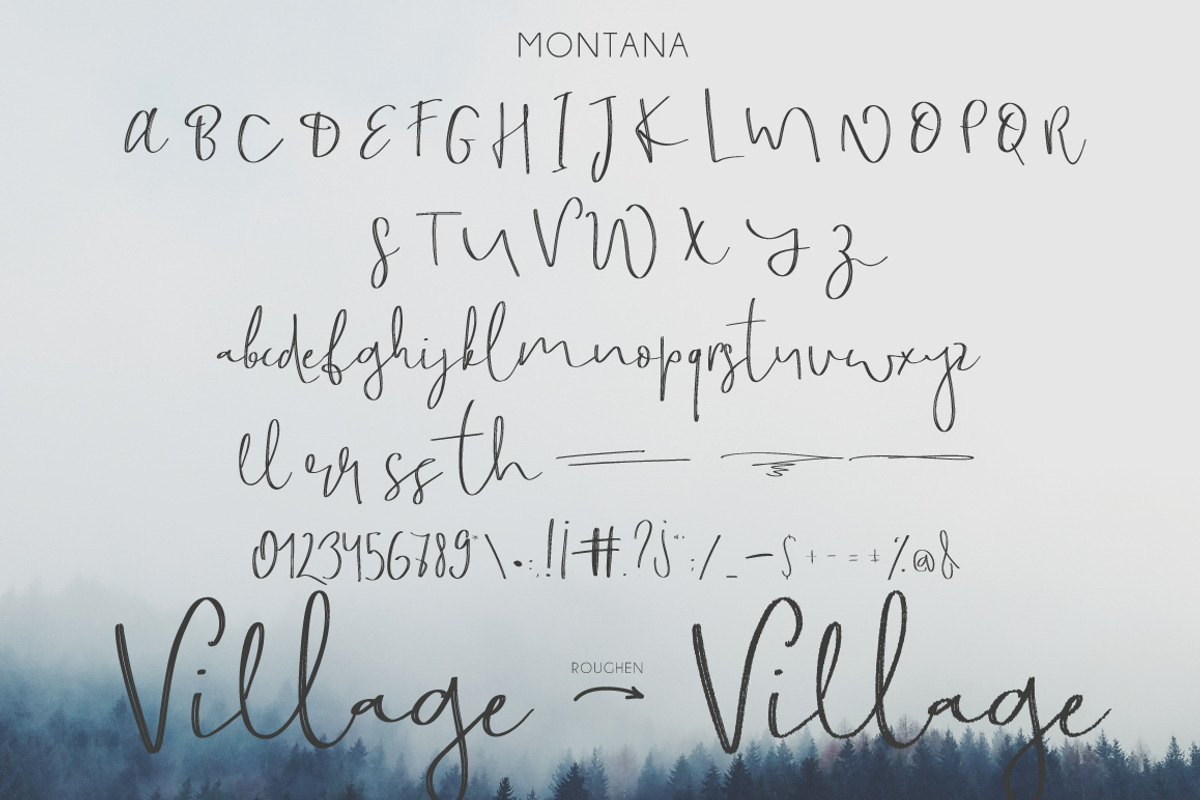 MONTANA
A B C D E F G H I J K L M N O P Q R
S T U V W X Y Z
abcdefghijklmnopqrstuvwxyz
ll rr ss th
0123456789 \ . : ! ¡ # ? : / _ - + - = ± % @ &
Village ROUGHEN Village